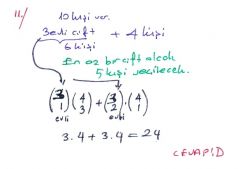 11./ 10 kişi var.
3 evli çift + 4 kişi
6 kişi
En az bir çift alcak
5 kişi seçilecek.
(3 1) (4 3) + (3 2) . (4 1)
evli evli
3.4 + 3.4 = 24
CEVAP: D